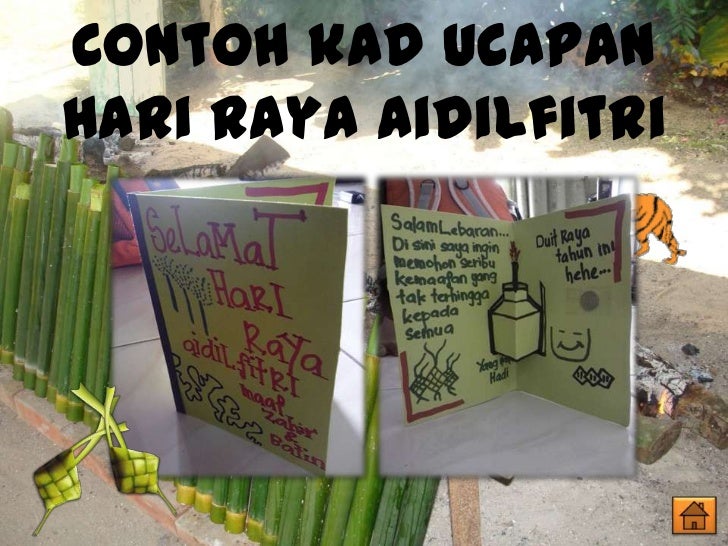 CONTOH KAD UCAPAN
HARI RAYA AIDILFITRI
SeLaMaT
HaRI
RaYa
aidiLfitRI
maaf
Zahir
&
Batin
Salam Lebaran...
Di sini saya ingin
memohon seribu
kemaafan yang
tak terhingga
kepada
Semua
Yang
Hadi
Duit Raya
tahun ini
hehe...